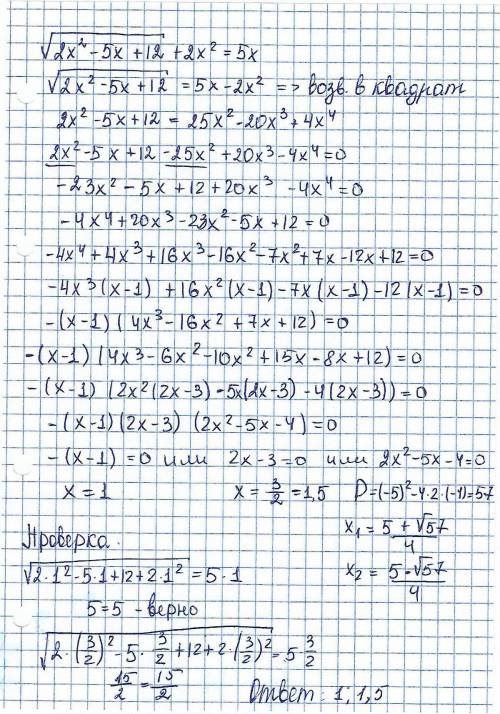 √(2x² -5x +12) + 2x² = 5x
√(2x² -5x +12) = 5x - 2x² => возв. в квадрат
2x² -5x +12 = 25x² -20x³ + 4x⁴
2x² -5x +12 -25x² +20x³ -4x⁴ = 0
-23x² -5x +12 +20x³ -4x⁴ = 0
-4x⁴ +20x³ -23x² -5x +12 = 0
-4x⁴ +4x³ +16x³ -16x² -7x² +7x -12x +12 = 0
-4x³(x-1) +16x²(x-1) -7x(x-1) -12(x-1) = 0
-(x-1)(4x³ -16x² +7x +12) = 0
-(x-1)(4x³ -6x² -10x² +15x -8x +12) = 0
-(x-1)(2x²(2x-3) -5x(2x-3) -4(2x-3)) = 0
-(x-1)(2x-3)(2x² -5x -4) = 0
-(x-1) = 0 или 2x-3 = 0 или 2x² -5x -4 = 0
x = 1 x = 3/2 = 1,5 D = (-5)² -4·2·(-4) = 57
x₁ = (5 + √57)/4
Проверка.
x₂ = (5 - √57)/4
√(2·1² -5·1 +12 +2·1²) = 5·1
5=5 - верно
√(2·(3/2)² -5·3/2 +12 +2·(3/2)²) = 5 3/2
15/2 = 15/2 Ответ: 1, 1,5